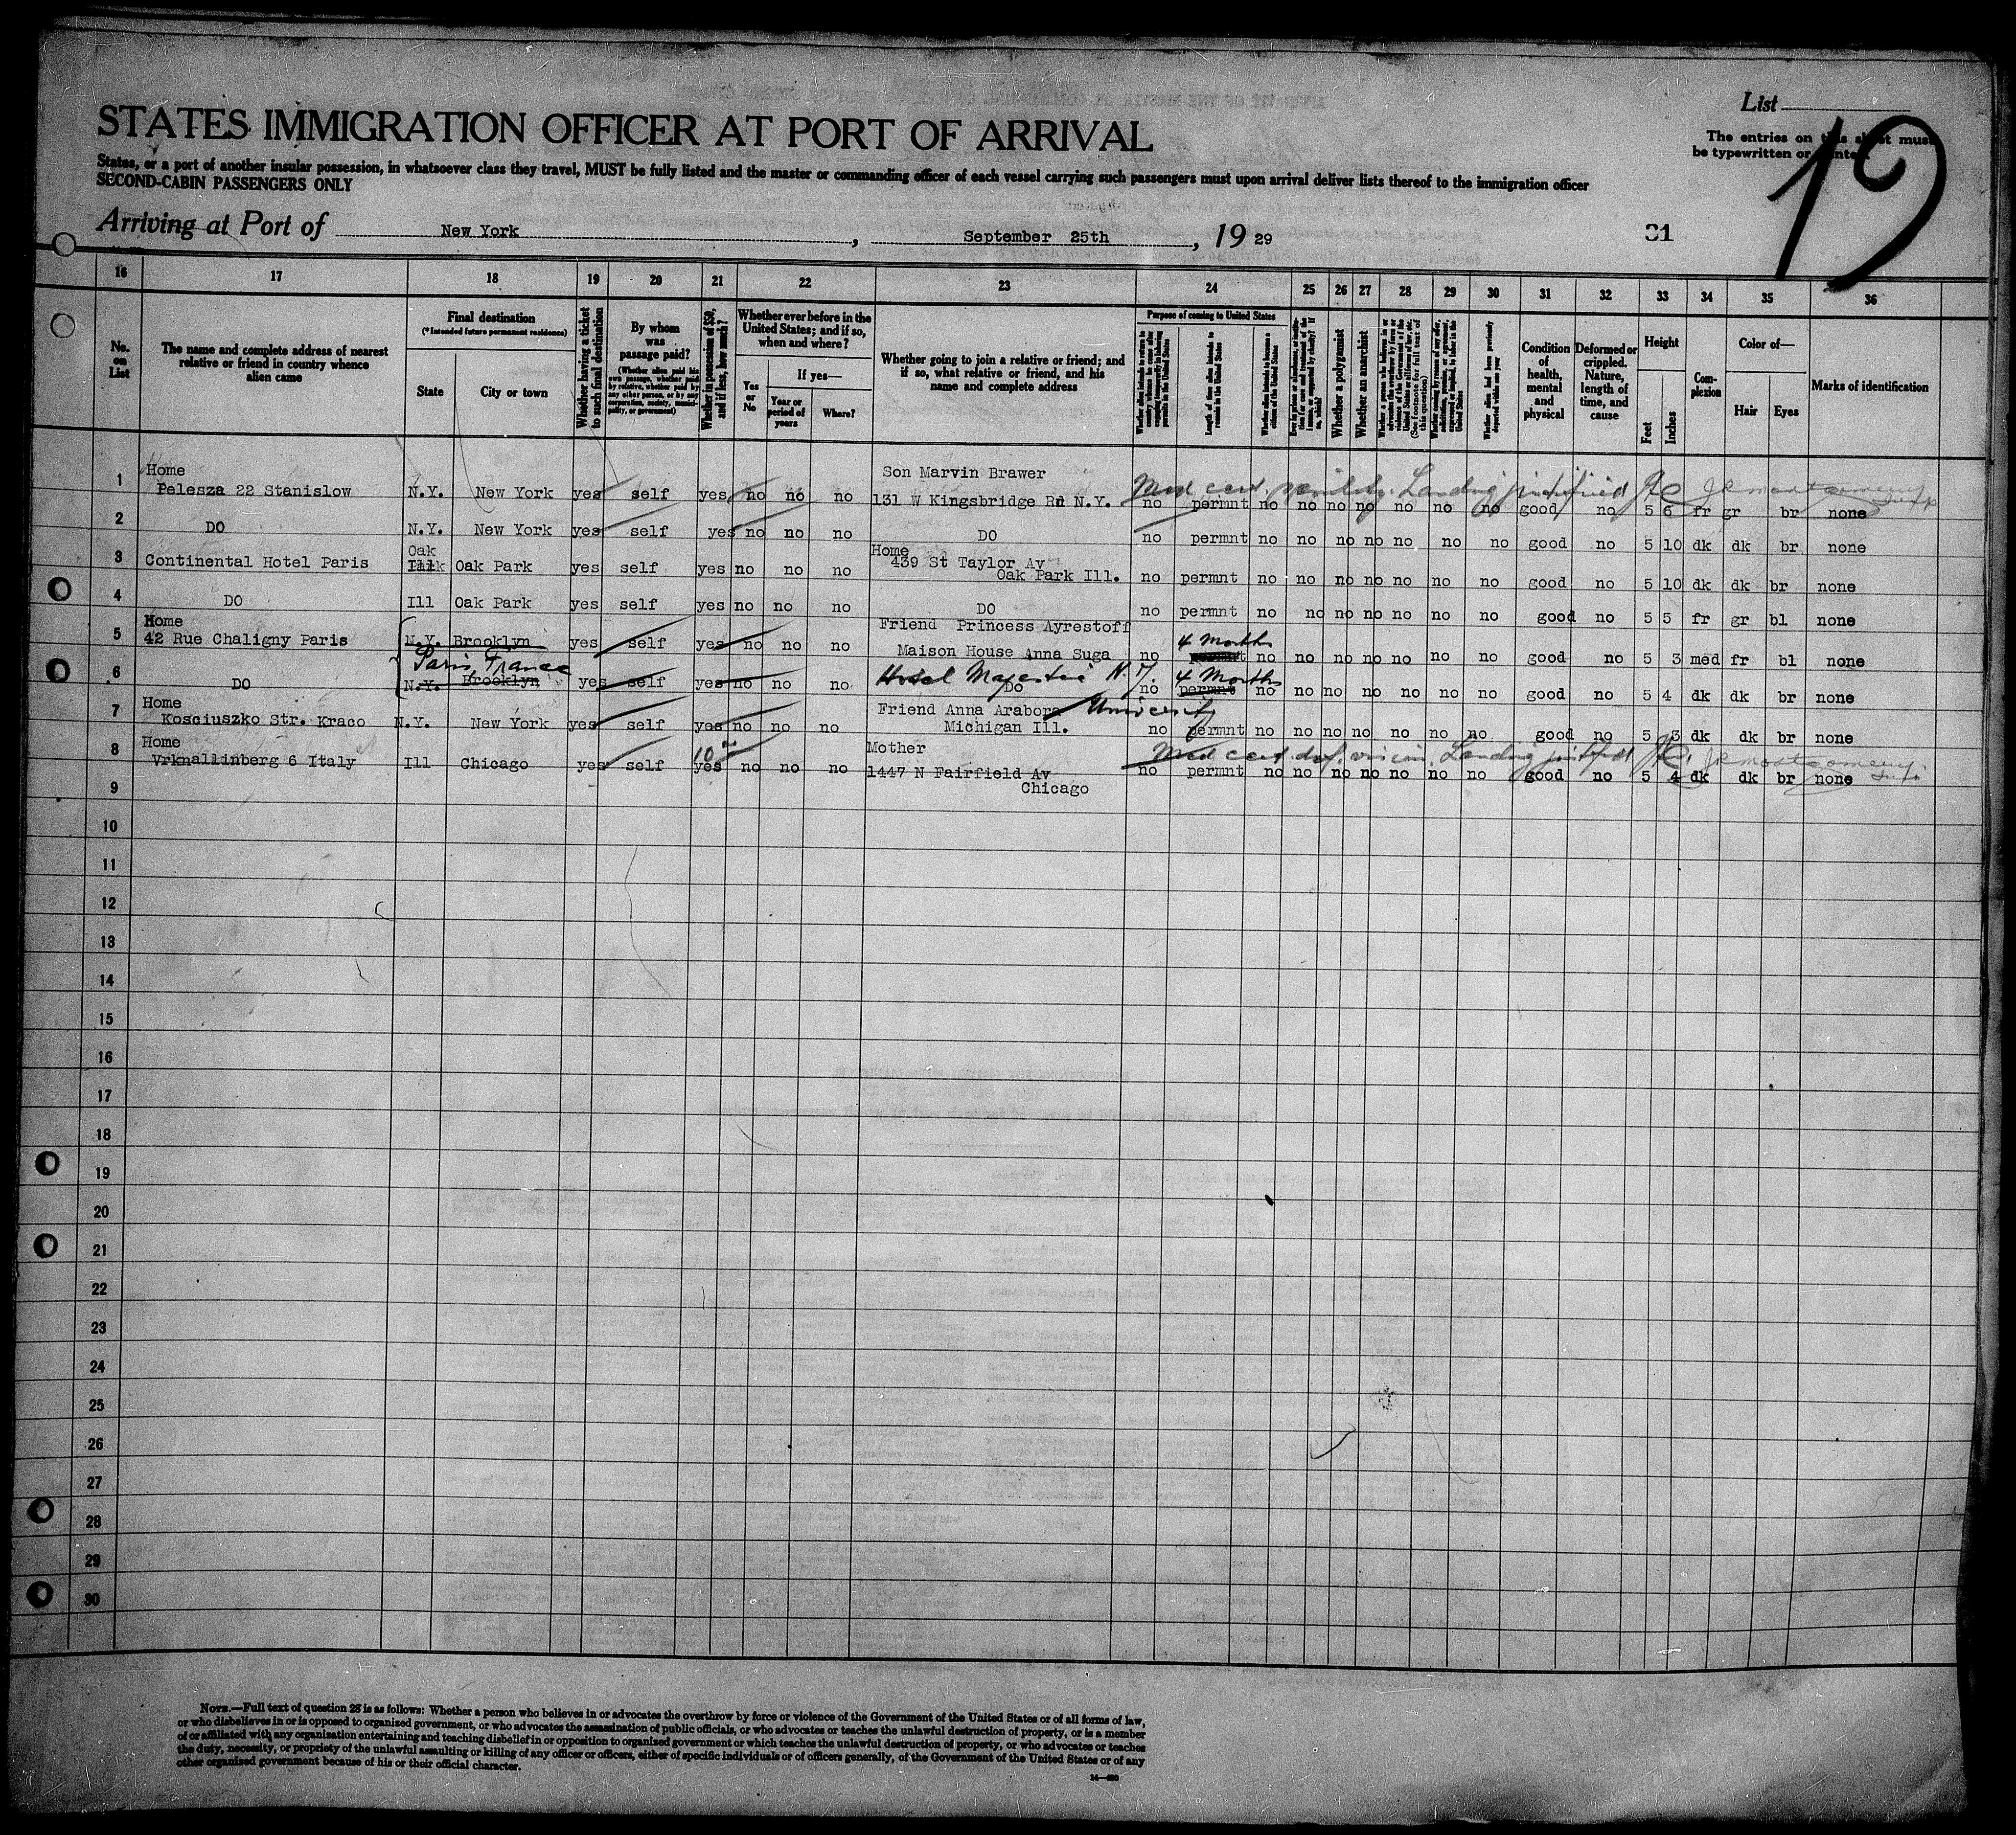 List
STATES IMMIGRATION OFFICER AT PORT OF ARRIVAL
The entries on this sheet must
be typewritten or printed.
19
States, or a port of another insular possession, in whatsoever class they travel, MUST be fully listed and the master or commanding officer of each vessel carrying such passengers must upon arrival deliver lists thereof to the immigration officer
SECOND-CABIN PASSENGERS ONLY
Arriving at Port of New York, September 25th, 19 29
31
16 17 18 19 20 21 22 23 24 25 26 27 28 29 30 31 32 33 34 35 36
No. on List
The name and complete address of nearest relative or friend in country whence alien came
Final destination
(*Intended future permanent residence)
State
City or town
Whether having a ticket to such final destination
By whom was passage paid?
(Whether alien paid his own passage, whether paid by relative, whether paid by any other person, or by any corporation, society, municipality, or government)
Whether in possession of $50, and if less, how much?
Whether ever before in the United States; and if so, when and where?
Yes or No
If yes—
Year or period of years
Where?
Whether going to join a relative or friend; and if so, what relative or friend, and his name and complete address
Purpose of coming to United States
Length of time alien intends to remain in the United States
Whether alien intends to become a citizen of the United States
Whether a polygamist
Whether an anarchist
(See footnote for full text of this question)
Whether alien had been previously deported within one year
Condition of health, mental and physical
Deformed or crippled. Nature, length of time, and cause
Height
Feet
Inches
Complexion
Color of—
Hair
Eyes
Marks of identification
Home Son Marvin Brawer
Med cert. senility. Landing justified
1 Pelesza 22 Stanislow N.Y. New York yes self yes no no no 131 W Kingsbridge Rd N.Y. no permnt no no no no no no no good no 5 6 fr gr br none
2 DO N.Y. New York yes self yes no no no DO no permnt no no no no no no no good no 5 10 dk dk br none
Oak Home
3 Continental Hotel Paris Ill Oak Park yes self yes no no no 439 St Taylor Av
Oak Park Ill. no permnt no no no no no no no good no 5 10 dk dk br none
4 DO Ill Oak Park yes self yes no no no DO no permnt no no no no no no no good no 5 5 fr gr bl none
Home Friend Princess Ayrestoff
5 42 Rue Chaligny Paris N.Y. Brooklyn yes self yes no no no Maison House Anna Suga no permnt 4 Months no no no no no no no good no 5 3 med fr bl none
Paris, France Hotel Majestic N.Y. 4 Months
6 DO N.Y. Brooklyn yes self yes no no no DO no permnt no no no no no no no good no 5 4 dk dk br none
Home Friend Anna Arabora University
7 Kosciuszko Str. Kraco N.Y. New York yes self yes no no no Michigan Ill. no permnt no no no no no no no good no 5 3 dk dk br none
Home 10 Mother
Med cert. def. vision. Landing justified
8 Vrknallinberg 6 Italy Ill Chicago yes self yes no no no 1447 N Fairfield Av no permnt no no no no no no no good no 5 4 dk dk br none
Chicago
9
10
11
12
13
14
15
16
17
18
19
20
21
22
23
24
25
26
27
28
29
30
NOTE.—Full text of question 28 is as follows: Whether a person who believes in or advocates the overthrow by force or violence of the Government of the United States or of all forms of law,
or who disbelieves in or is opposed to organized government, or who advocates the assassination of public officials, or who advocates or teaches the unlawful destruction of property, or is a member
of or affiliated with any organization entertaining and teaching disbelief in or opposition to organized government or which teaches the unlawful destruction of property, or who advocates or teaches
the duty, necessity, or propriety of the unlawful assaulting or killing of any officer or officers, either of specific individuals or of officers generally, of the Government of the United States or of any
other organized government because of his or their official character.